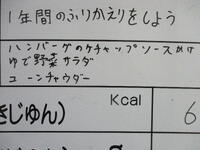 1年間のふりかえりをしよう
ハンバーグのケチャップソースかけ
ゆで野菜サラダ
コーンチャウダー
Kcal
きじゅん)
6